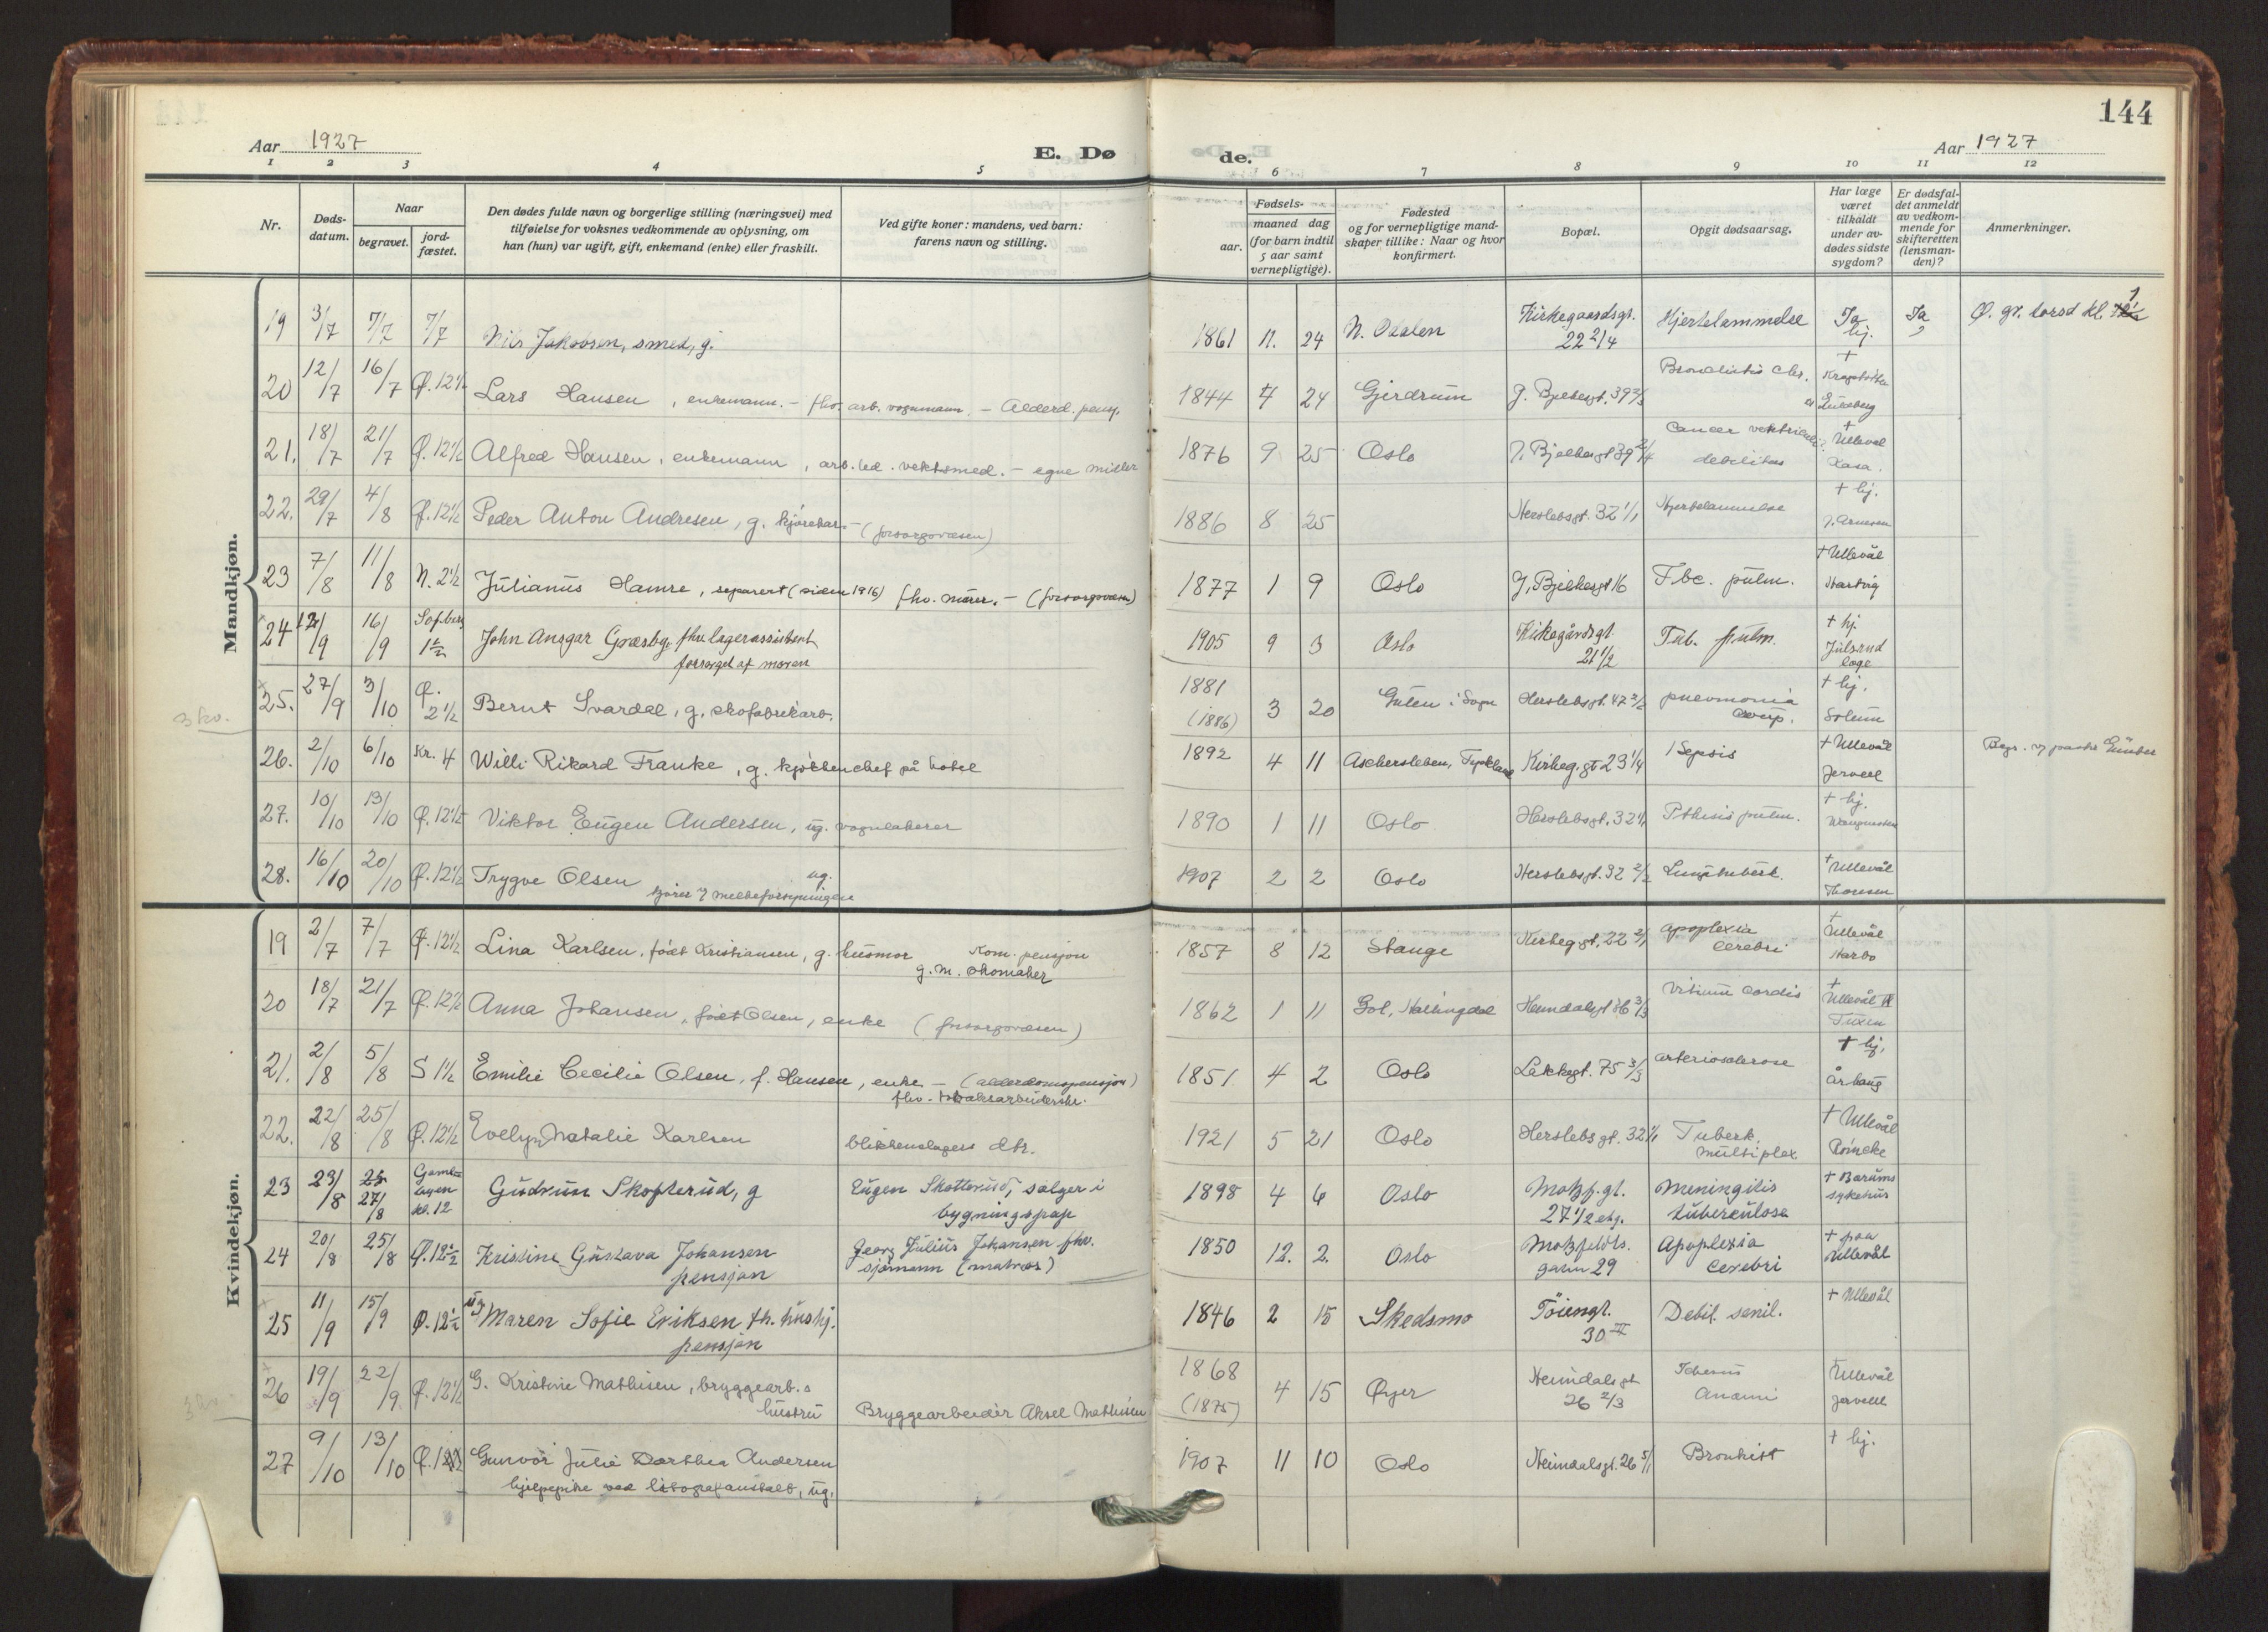 144
Aar 1927
E. Dø
de.
Aar 1927
1 2 3 4 5 6 7 8 9 10 11 12
Nr.
Døds-
datum.
Naar
begravet.
jord-
fæstet.
Den dødes fulde navn og borgerlige stilling (næringsvei) med
tilføielse for voksnes vedkommende av oplysning, om
han (hun) var ugift, gift, enkemand (enke) eller fraskilt.
Ved gifte koner: mandens, ved barn:
farens navn og stilling.
Fødsels-
aar.
maaned dag
(for barn indtil
5 aar samt
vernepligtige).
Fødested
og for vernepligtige mand-
skaper tillike: Naar og hvor
konfirmert.
Bopæl.
Opgit dødsaarsag.
Har læge
været
tilkaldt
under av-
dødes sidste
sygdom?
Er dødsfal-
det anmeldt
av vedkom-
mende for
skifteretten
(lensman-
den)?
Anmerkninger.
Mandkjøn.
19 3/7 7/7 7/7 Nils Jakobsen, smed, g. 1861 11. 24 N. Odalen Kirkegaardsgt. 22 2/4 Hjertelammelse Ja hj. Ja Ø. gr. torsd kl. 1
20 12/7 16/7 Ø. 12 1/2 Lars Hansen, enkemann. – fhv. arb. vognmann. – Alderd. pensj. 1844 7 24 Gjerdrum J. Bjelkesgt. 39 2/3 Bronchitis chr. +
21. 18/7 21/7 Ø. 12 1/2 Alfred Hansen, enkemann, arb. led. vektsmed. – egne midler 1876 9 25 Oslo J. Bjelkesgt 39 2/4 Cancer ventriculi debilitas + Ullevål
22. 29/7 4/8 Ø. 12 1/2 Peder Anton Andresen, g. kjørekar – (forsorgsvæsen) 1886 8 25 Herslebsgt. 32 1/1 Hjertelammelse + hj. J. Arnesen
23 7/8 11/8 N. 2 1/2 Julianus Hamre, separert (siden 1916) fhv. murer. – (forsorgsvæsen) 1877 1 9 Oslo J. Bjelkesgt 16 Tbc. pulm. + Ullevål Hartvig
24 12/9 16/9 Sofberg 1 1/2 John Ansgar Græsbg. fhv lagerassistent
forsørget af moren 1905 9 3 Oslo Kirkegårdsgt. 21 1/2 Tub. pulm. + hj. Julsrud læge
3 kv.
25. 27/9 3/10 Ø. 2 1/2 Bernt Svardal, g. skofabrikarb. 1881 (1886) 3 20 Gulen i Sogn Herslebsgt. 47 2/2 pneumonia croup. + hj. Solum
26. 2/10 6/10 Kr. 4 Willi Rikard Franke, g. kjøkkenchef på hotel 1892 4 11 Aschersleben, Tyskland Kirkeg.gt 23 1/4 Sepsis + Ullevål Jervell
27. 10/10 13/10 Ø. 12 1/2 Viktor Eugen Andersen, ug. vognlakerer 1890 1 11 Oslo Herslebsgt. 32 1/1 Pthisis pulm. + hj.
28. 16/10 20/10 Ø. 12 1/2 Trygve Olsen ug.
kjører v melkeforsyningen 1907 2 2 Oslo Herslebsgt. 32 2/2 Lungetuberk. + Ullevål Thoresen
Kvindekjøn.
19 2/7 7/7 Ø. 12 1/2 Lina Karlsen, født Kristiansen, g. husmor Kom. pensjon
g. m. skomaker 1857 8 12 Stange Kirkeg.gt. 22 2/1 apoplexia cerebri + Ullevål Harbo
20 18/7 21/7 Ø. 12 1/2 Anna Johansen, født Olsen, enke (forsorgsvæsen) 1862 1 11 Gol, Hallingdal Heimdalsgt 26 3/3 Vitium cordis + Ullevål Tuxen
21. 2/8 5/8 S 1 1/2 Emilie Cecilie Olsen, f. Hansen, enke – (alderdomspensjon)
fhv. tobaksarbeiderske. 1851 4 2 Oslo Lakkegt. 75 3/3 arteriosclerose + hj. Århaug
22. 22/8 25/8 Ø. 12 1/2 Evelyn Natalie Karlsen blikkenslagers dtr. 1921 5 21 Oslo Herslebsgt. 32 1/1 Tuberk. multiplex + Ullevål Römcke
23 23/8 27/8 Gamlebyen kl. 12 Gudrun Skofterud, g Eugen Skotterud, selger i
bygningspap 1898 4 6 Oslo Motzf.gt. 27 1/2 etg. Meningitis tuberculosa + Bærums sykehus
24 20/8 25/8 Ø. 12 1/2 Kristine Gustava Johansen
pensjon Georg Julius Johansen fhv.
sjømann (matros) 1850 12. 2. Oslo Motzfeldts. gaten 29 Apoplexia cerebri + paa Ullevål
25 11/9 15/9 Ø. 12 1/2 ug Maren Sofie Eriksen fh. hushj.
pensjon 1846 2 15 Skedsmo Töiengt. 30 II Debil. senil. + Ullevål
26 19/9 22/9 Ø. 12 1/2 G. Kristine Mathisen, bryggearb.s
hustru Bryggearbeider Aksel Mathisen 1868 (1875) 4 15 Øyer Heimdalsgt 26 2/3 Anæmi + Ullevål Jervell
27 9/10 13/10 Ø. Gunvor Julie Dorthea Andersen
hjelpepike ved litografanstalt, ug. 1907 11 10 Oslo Heimdalsgt. 26 5/1 Bronkist + hj.